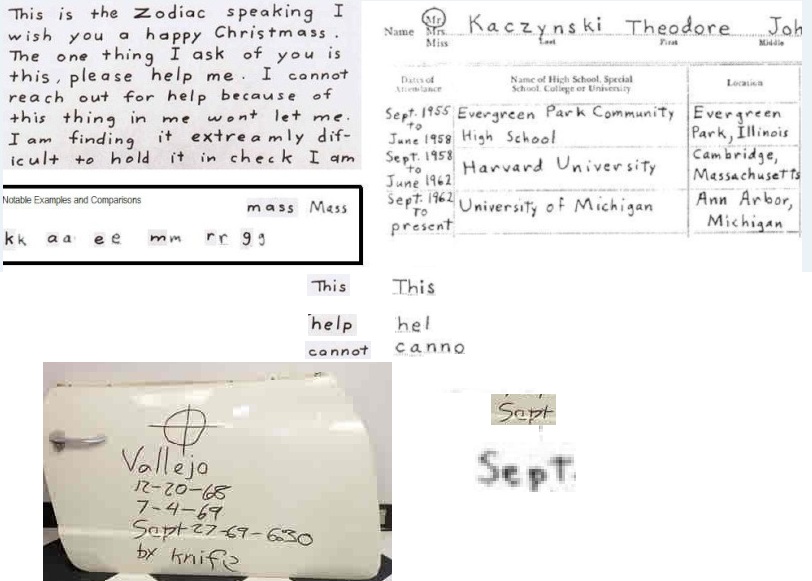 This is the Zodiac speaking I
wish you a happy Christmass.
The one thing I ask of you is
this, please help me. I cannot
reach out for help because of
this thing in me wont let me.
I am finding it extreamly dif-
icult to hold it in check I am
Notable Examples and Comparisons
mass Mass
kk aa ee mm rr gg
Name Mr. Mrs. Miss Kaczynski Theodore Joh
Last First Middle
Dates of Attendance
Name of High School, Special School, College or University
Location
Sept. 1955 to June 1958
Evergreen Park Community High School
Evergreen Park, Illinois
Sept. 1958 to June 1962
Harvard University
Cambridge, Massachusetts
Sept. 1962 To present
University of Michigan
Ann Arbor, Michigan
This This
help hel
cannot canno
Vallejo
12-20-68
7-4-69
Sept 27-69-6:30
by knife
Sept
Sept.